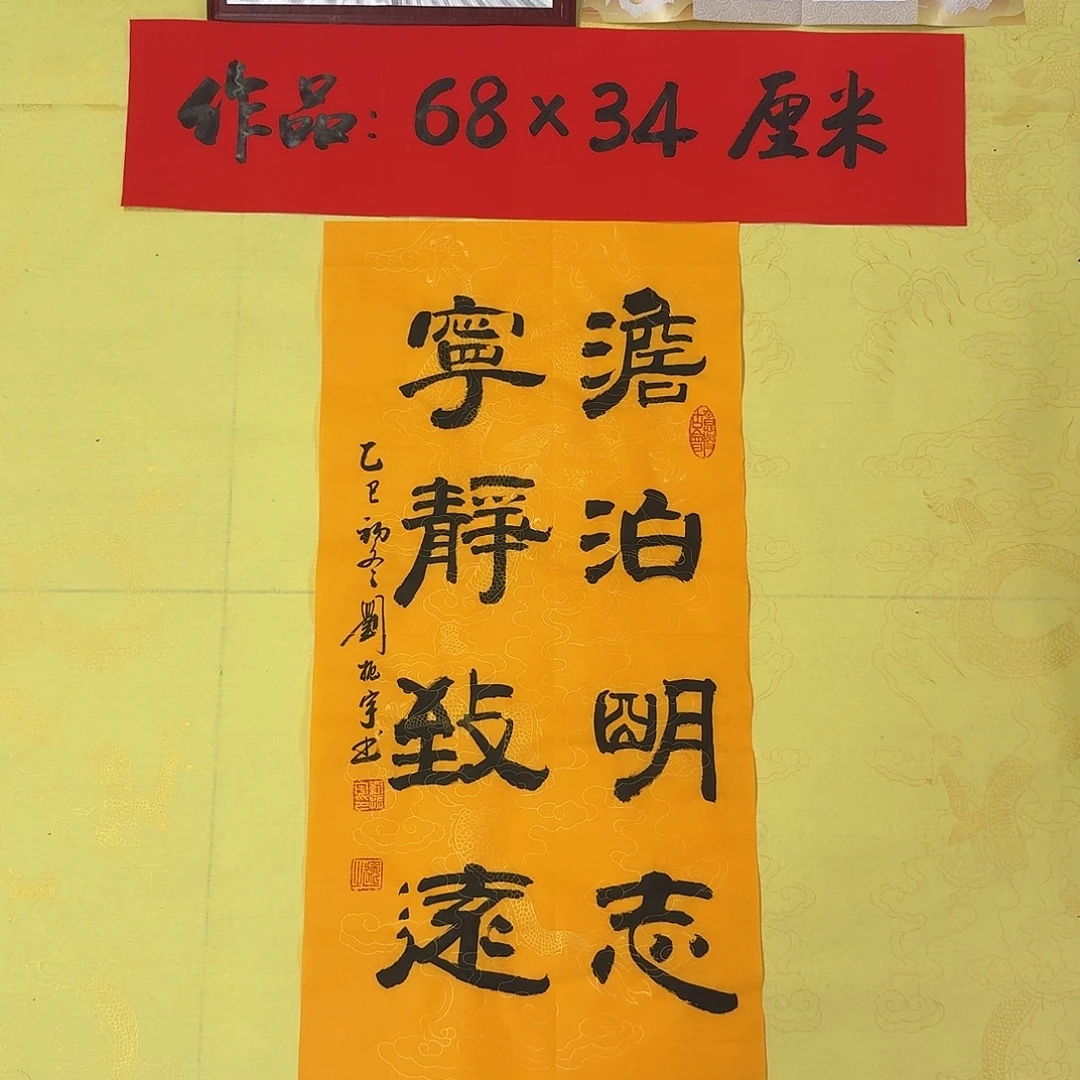 作品: 68×34 厘米
澹泊明志
寧靜致遠
乙巳初冬劉振宇书